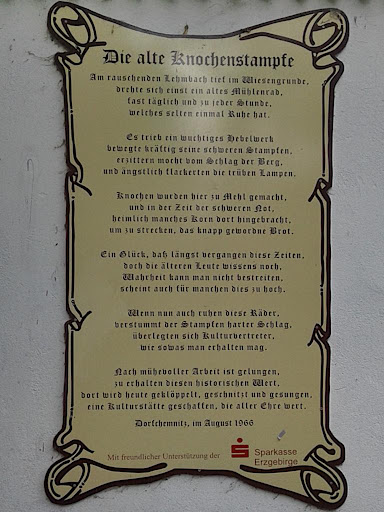 Die alte Knochenstampfe
Am rauschenden Lehmbach tief im Wiesengrunde,
drehte sich einst ein altes Mühlenrad,
fast täglich und zu jeder Stunde,
welches selten einmal Ruhe hat.
Es trieb ein wuchtiges Hebelwerk
bewegte kräftig seine schweren Stampfen,
erzittern mocht vom Schlag der Berg,
und ängstlich flackerten die trüben Lampen.
Knochen wurden hier zu Mehl gemacht,
und in der Zeit der schweren Not,
heimlich manches Korn dort hingebracht,
um zu strecken, das knapp gewordne Brot.
Ein Glück, daß längst vergangen diese Zeiten,
doch die älteren Leute wissens noch,
Wahrheit kann man nicht bestreiten,
scheint auch für manchen dies zu hoch.
Wenn nun auch ruhen diese Räder,
verstummt der Stampfen harter Schlag,
überlegten sich Kulturvertreter,
wie sowas man erhalten mag.
Nach mühevoller Arbeit ist gelungen,
zu erhalten diesen historischen Wert,
dort wird heute geklöppelt, geschnitzt und gesungen,
eine Kulturstätte geschaffen, die aller Ehre wert.
Dorfchemnitz, im August 1966
Mit freundlicher Unterstützung der
Sparkasse
Erzgebirge